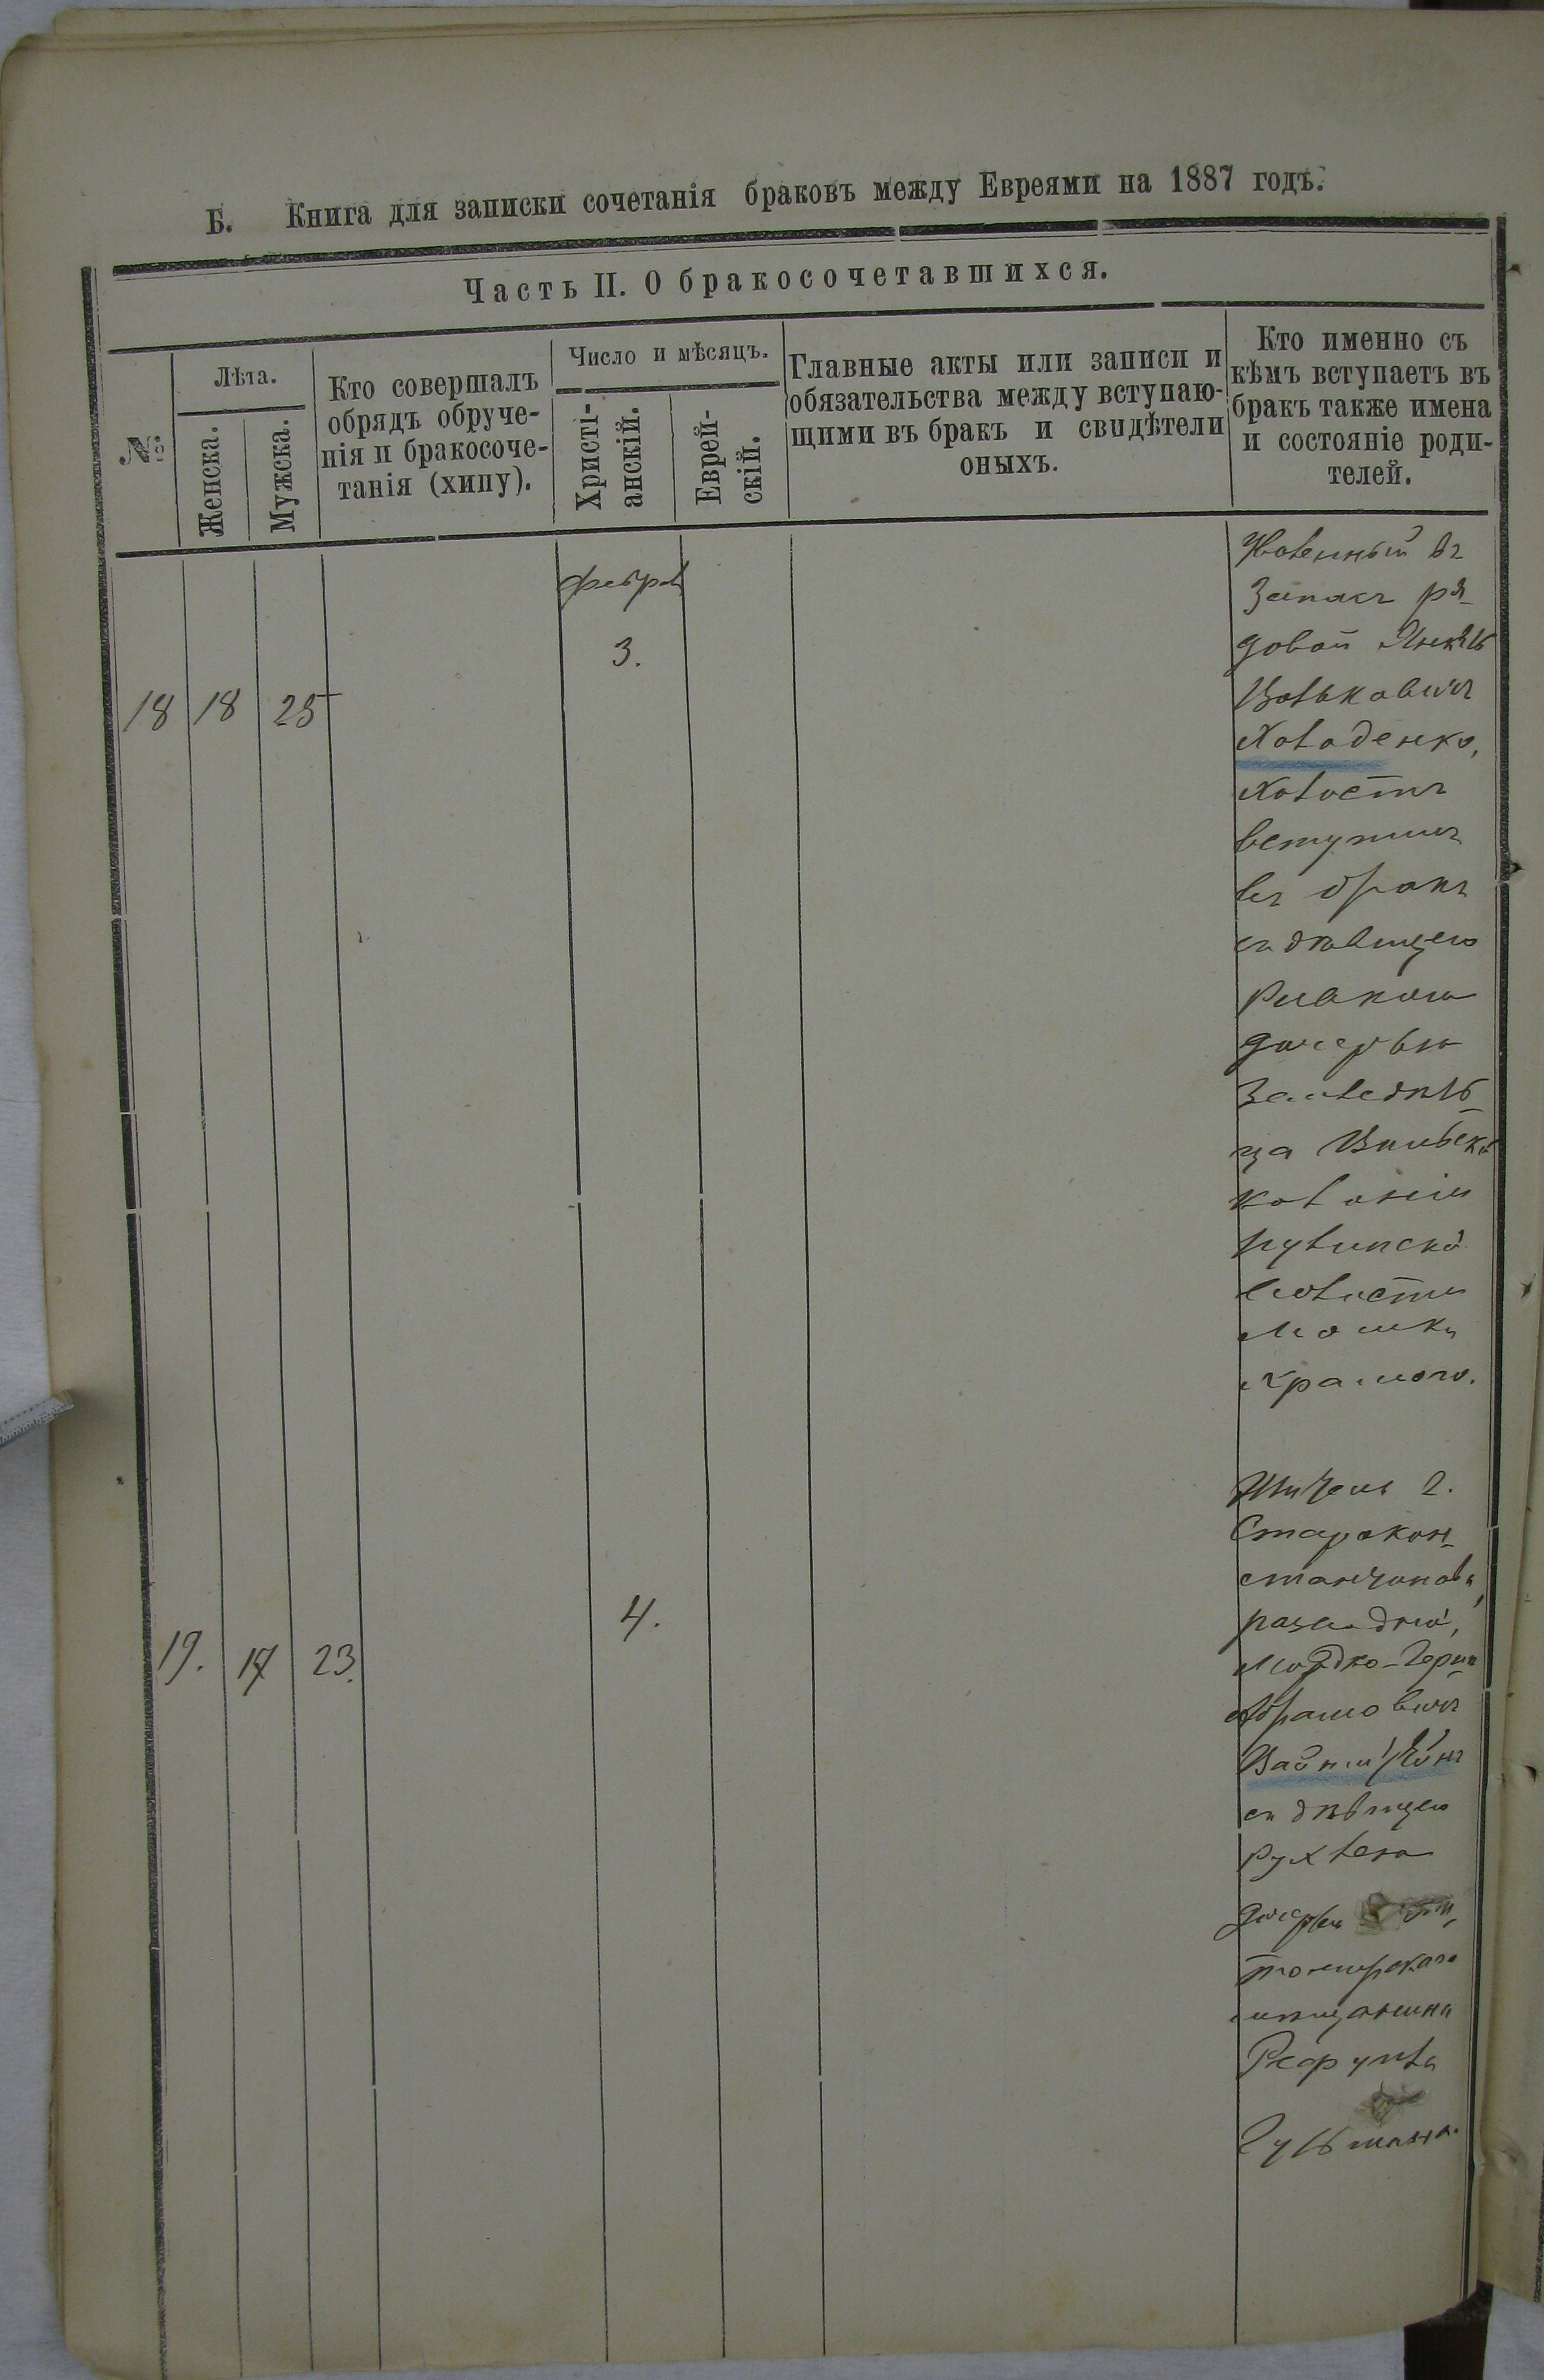 Б. Книга для записки сочетанія браковъ между Евреями на 1887 годъ.
Часть II. О бракосочетавшихся.
№
Лѣта.
Женска.
Мужска.
Кто совершалъ
обрядъ обруче-
нія и бракосоче-
танія (хипу).
Число и мѣсяцъ.
Христі-
анскій.
Еврей-
скій.
Главные акты или записи и
обязательства между вступаю-
щими въ бракъ и свидѣтели
оныхъ.
Кто именно съ
кѣмъ вступаетъ въ
бракъ также имена
и состояніе роди-
телей.
18 18 25
феврал
3.
Уволенный въ
Запасъ ря-
довой Янкель
Волькович
Холоденко,
холостъ
вступилъ
въ бракъ
съ дѣвицею
Ривкою
дочерью
Земледѣль-
ца
колоніи
волости
Мошки
19. 17 23.
4.
Житель г.
Старокон-
стантинова,
разводной,
Мордко-Герш
Абрамовичъ
Вайнштейнъ
съ дѣвицею
Рухлею
дочерью
томирскаго
мѣщанина
Гульмана.